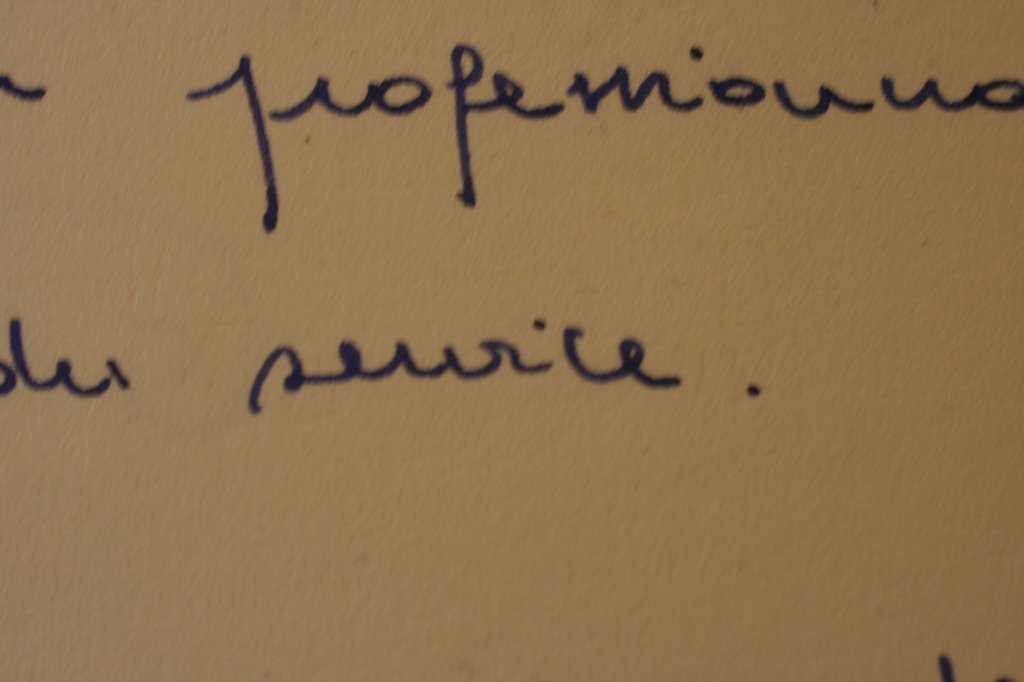 professionna
du service.